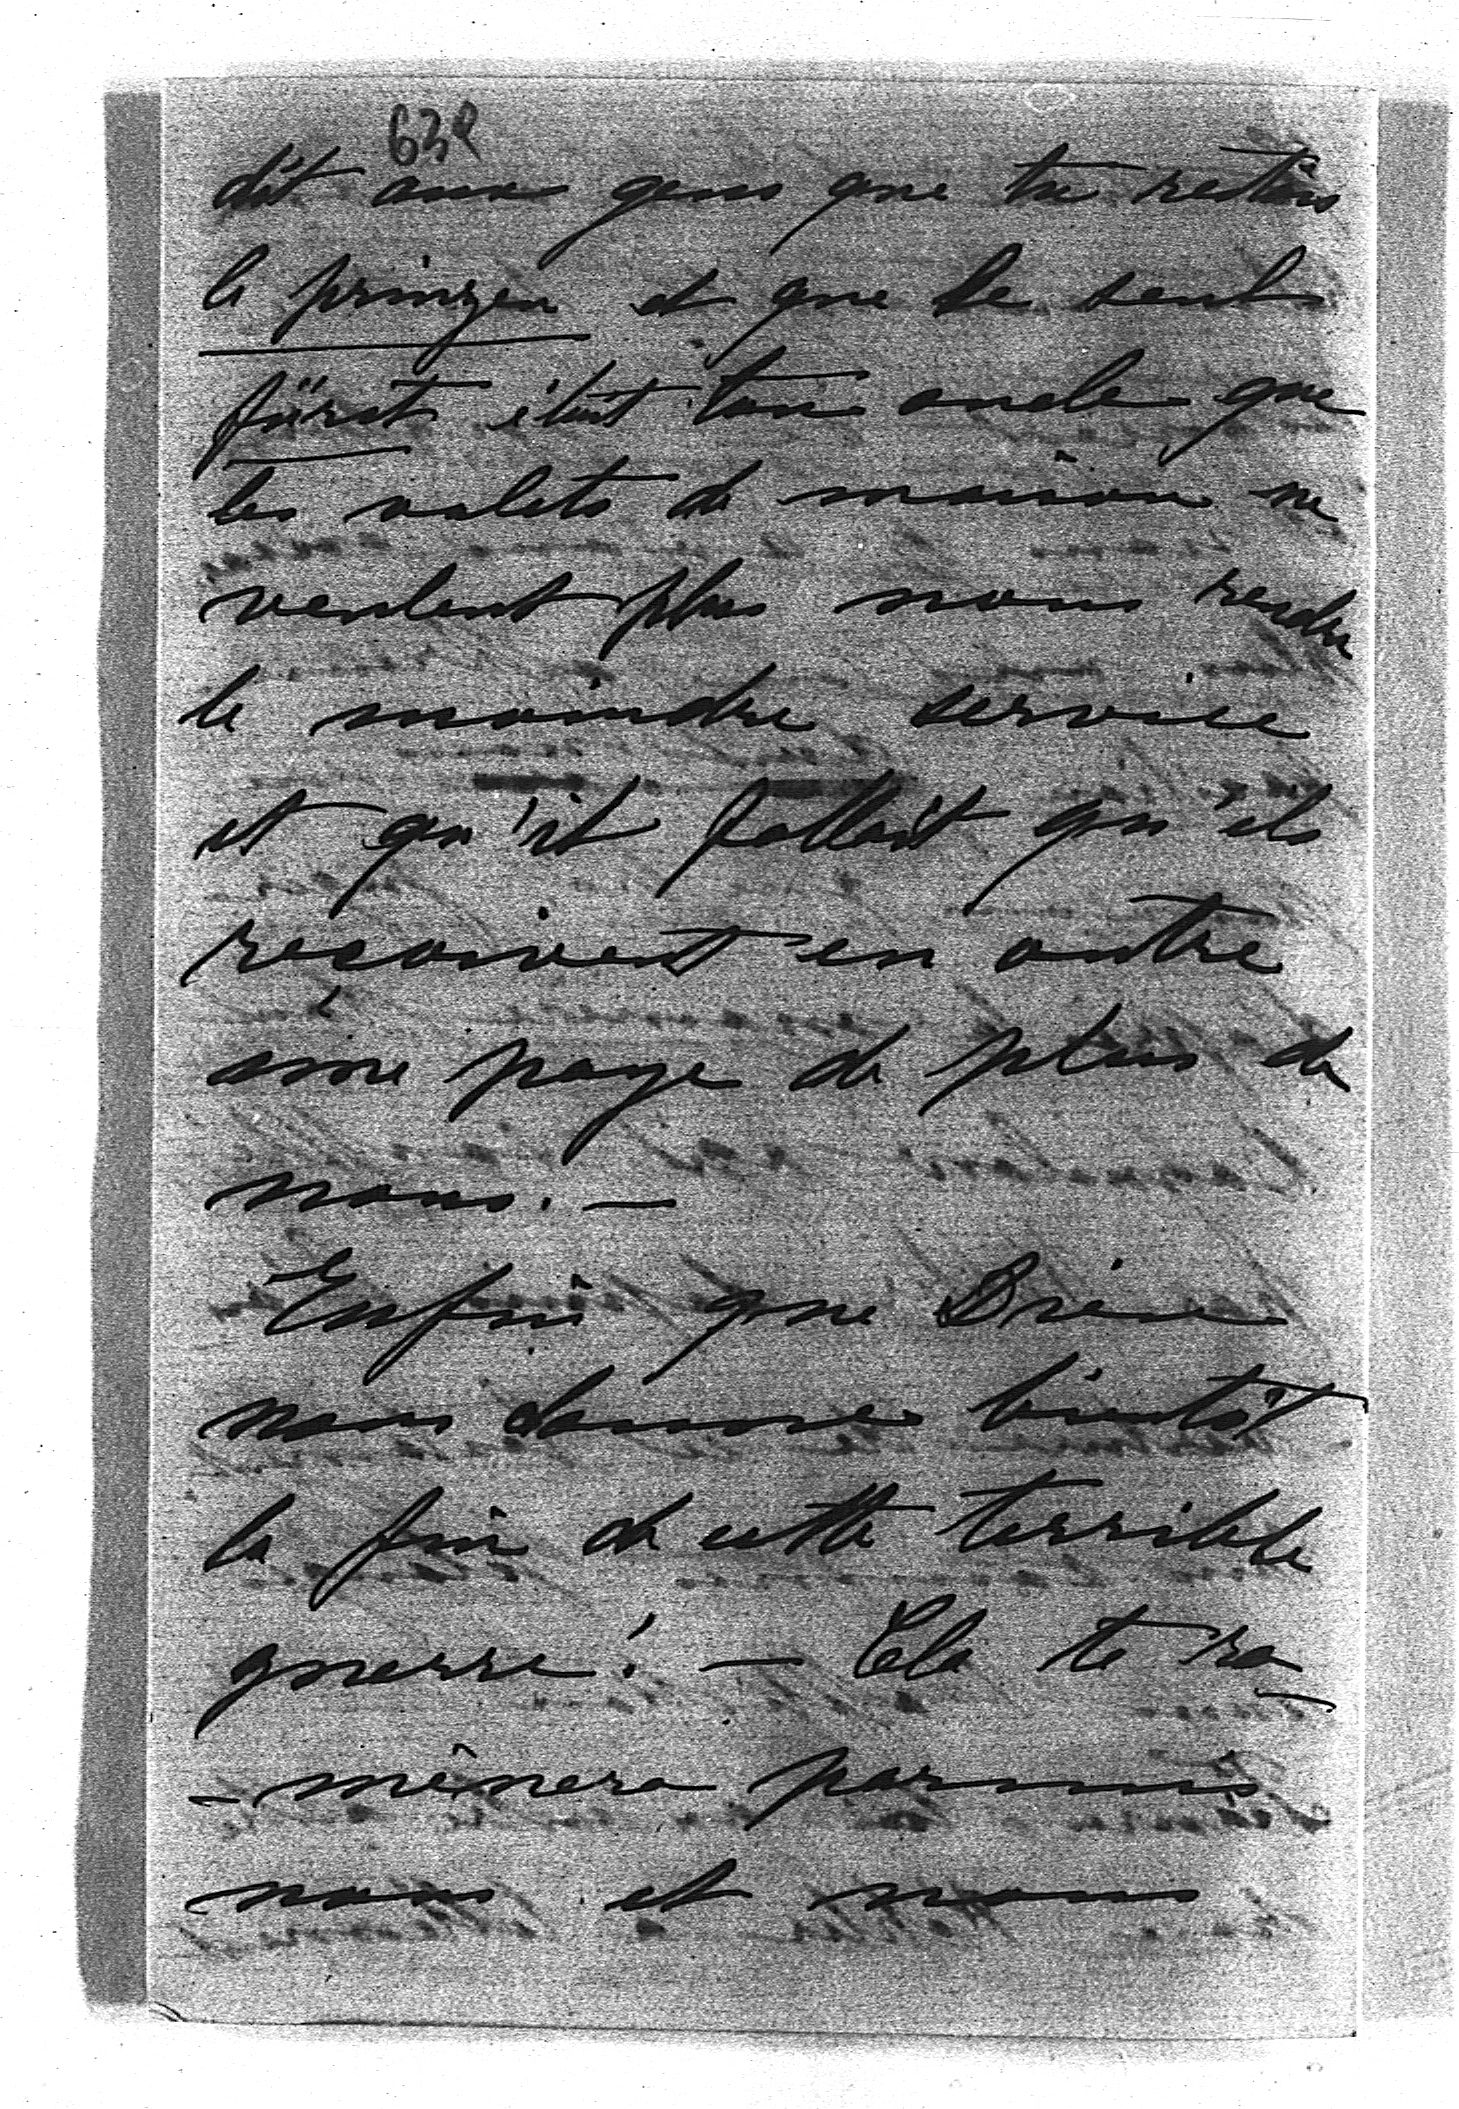 632
dit aux gens que tu restais
le prinzen et que le seul
fürst était ton oncle que
les valets de maison ne
veulent plus nous rendre
le moindre service
et qu'il fallait qu'ils
reçoivent en outre
une paye de plus de
nous. —
Enfin que Dieu
nous donne bientôt
la fin de cette terrible
guerre! — Cela te ra
- mènera parmis
nous et nous